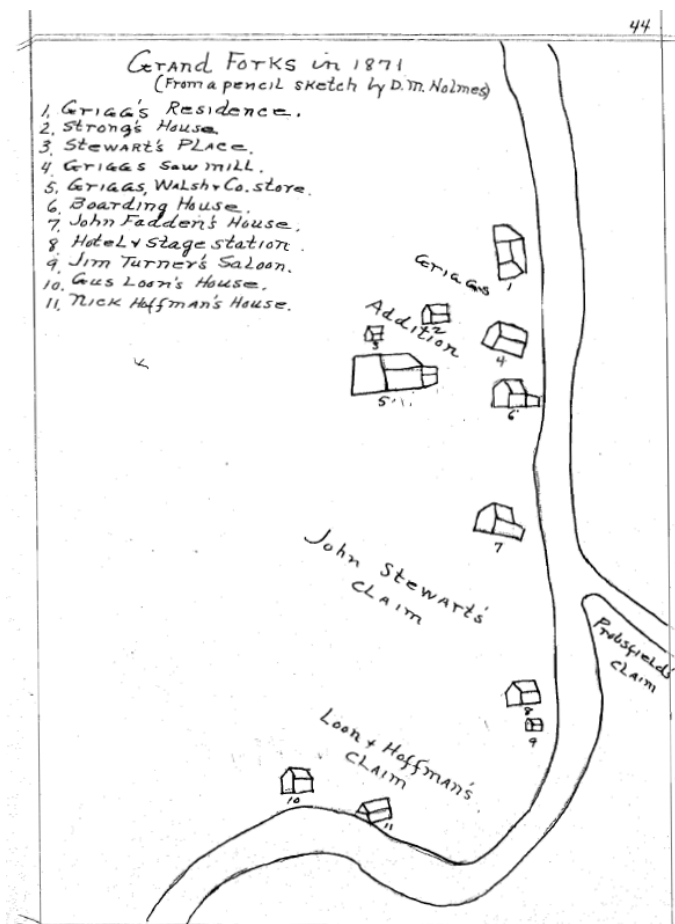 44
Grand Forks in 1871
(From a pencil sketch by D.M. Holmes)
1. Griggs's Residence.
2. Strong's House.
3. Stewart's Place.
4. Griggs Saw mill.
5. Griggs, Walsh & Co. store.
6. Boarding House.
7. John Fadden's House.
8. Hotel & Stage station.
9. Jim Turner's Saloon.
10. Gus Loon's House.
11. Nick Hoffman's House.
Griggs
1
Addition
2
3
4
5
6
7
John Stewart's
Claim
Probsfield's
Claim
8
9
Loon & Hoffman's
Claim
10
11